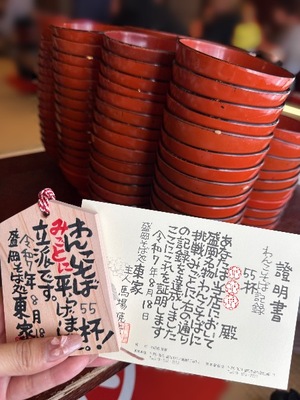 わんこそば
55杯!
みごとに平らげま
立派です。
令和7年8月18
盛岡そば処 東家
證明書
わんこそば記録
55杯
殿
あなたは当店において
盛岡名物わんこそばに
挑戦みごとに右の通り
の記録を達成しました
ここにこれを証明します
令和7年8月18日
盛岡そば処 東家
主 馬場